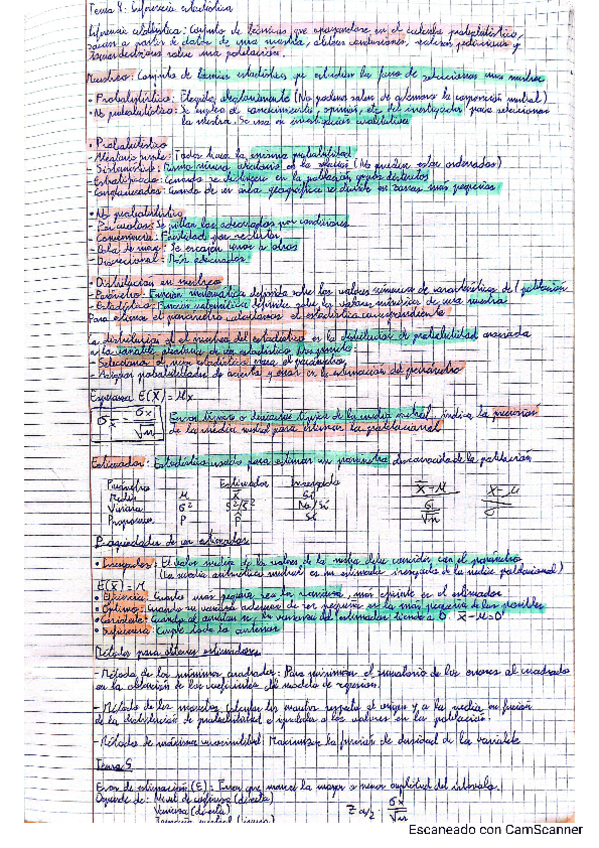 Tema 4: Inferencia estadística
Inferencia estadística: Conjunto de técnicas que apoyándose en el cálculo probabilístico,
a partir de datos de una muestra, obtener conclusiones, realizar predicciones y
tomar decisiones sobre una población.
Muestreo: Conjunto de técnicas estadísticas que estudian la forma de seleccionar una muestra
• Probabilístico: Elegidos aleatoriamente (No podemos saber de antemano la composición muestral)
• No probabilístico: Se emplea el conocimiento, opinión, etc. del investigador para seleccionar
la muestra. Se usa en investigación cualitativa
• Probabilístico
- Aleatorio simple: Todos tienen la misma probabilidad
- Sistemático: Primer número aleatorio en la (No pueden estar ordenados)
- Estratificado: Cuando se distinguen en la población grupos distintos
- Conglomerados: Cuando es un área geográfica se divide en zonas más pequeñas
• No probabilístico
- Por cuotas: Se pillan los adecuados por condiciones
- Conveniencia: Facilidad por reclutar
- Bola de nieve: Se escogen unos a otros
- Discrecional: Más adecuados
• Distribución en muestreo
- Parámetro: Función matemática definida sobre los valores numéricos de características de 1 población
- Estadístico: Función matemática definida sobre los valores numéricos de una muestra
Para estimar el parámetro calculamos el estadístico correspondiente
La distribución en el muestreo del estadístico es la distribución de probabilidad asociada
a la variable aleatoria de un estadístico. Nos permite:
- Seleccionar el mejor estadístico para el parámetro
- Asignar probabilidades de acierto y error en la estimación del parámetro
Esperanza E(X̄) = μx
σx̄ = σx / √n
Error típico o desviación típica de la media muestral. Indica la precisión
de la media muestral para estimar la poblacional
Estimador: Estadístico usado para estimar un parámetro desconocido de la población
Parámetro Estimador Insesgado
Media μ X̄ Sí
Varianza σ² S²/Ŝ² No/Sí
Proporción P P̂ Sí
X̄ - μ / σ/√n X - μ / σ
Propiedades de un estimador
• Insesgadez: El valor medio de los valores de la media debe coincidir con el parámetro
(La media aritmética muestral es un estimador insesgado de la media poblacional)
E(X̄) = μ
• Eficiencia: Cuanto más pequeña sea la varianza, más eficiente es el estimador
• Óptimo: Cuando su varianza además de ser pequeña es la más pequeña de las posibles
• Consistente: Cuando al ampliar n, la varianza del estimador tiende a 0 X̄-μ=0
• Suficiencia: Cumple todo lo anterior
Métodos para obtener estimadores
- Método de los mínimos cuadrados: Para minimizar el sumatorio de los errores al cuadrado
en la obtención de los coeficientes del modelo de regresión.
- Método de los momentos: Calcular los momentos respecto al origen y a la media en función
de la distribución de probabilidad e igualarlo a los valores en la población.
- Método de máxima verosimilitud: Maximizar la función de densidad de la variable
Tema 5
Error de estimación (E): Error que marca la mayor o menor amplitud del intervalo.
Depende de: Nivel de confianza (directa)
Varianza (directa)
Z α/2 · σx / √n
Escaneado con CamScanner